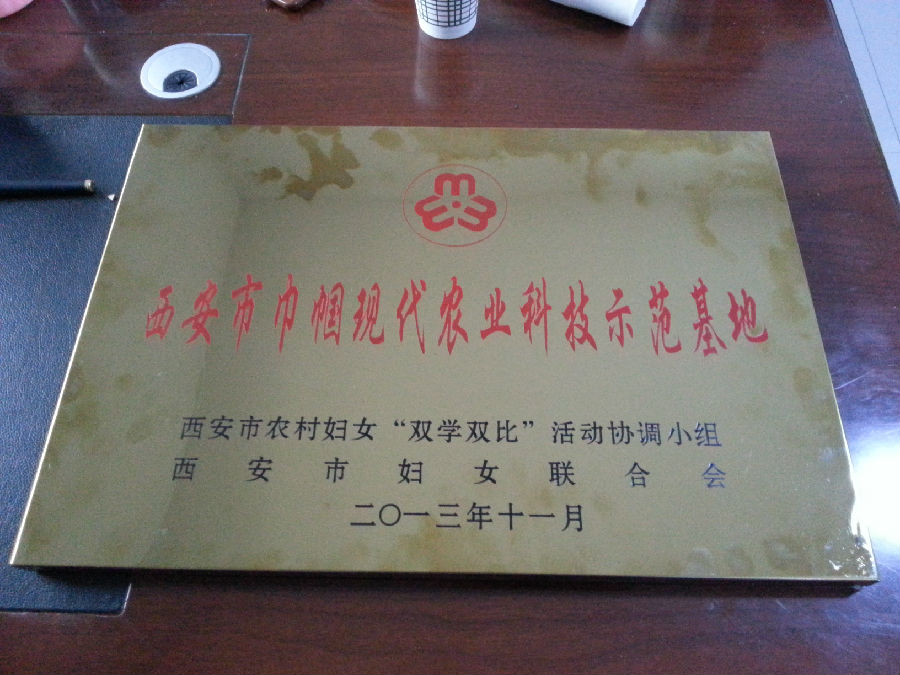 西安市巾帼现代农业科技示范基地
西安市农村妇女“双学双比”活动协调小组
西安市妇女联合会
二〇一三年十一月